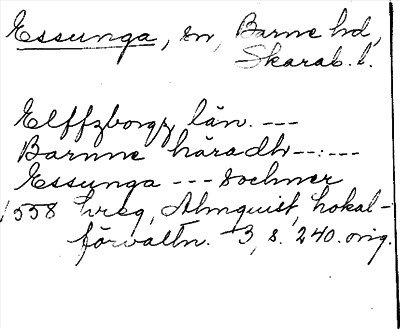 Essunga, sn, Barne hd,
Skarab. l.
Elffzborgz län. ---
Barnne häradh --:---
Essunga --- Sochner
1558 hreg, Almquist, Lokal-
förvaltn. 3, s. 240. orig.